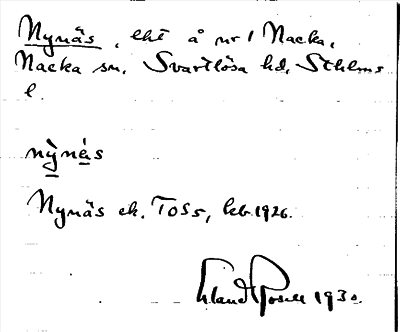 Nynäs, lht å nr 1 Nacka,
Nacka sn. Svartlösa hd, Sthlms
l.
nỳnás
Nynäs ek. TOSS, leb. 1926.
Erland Rosell 1930.